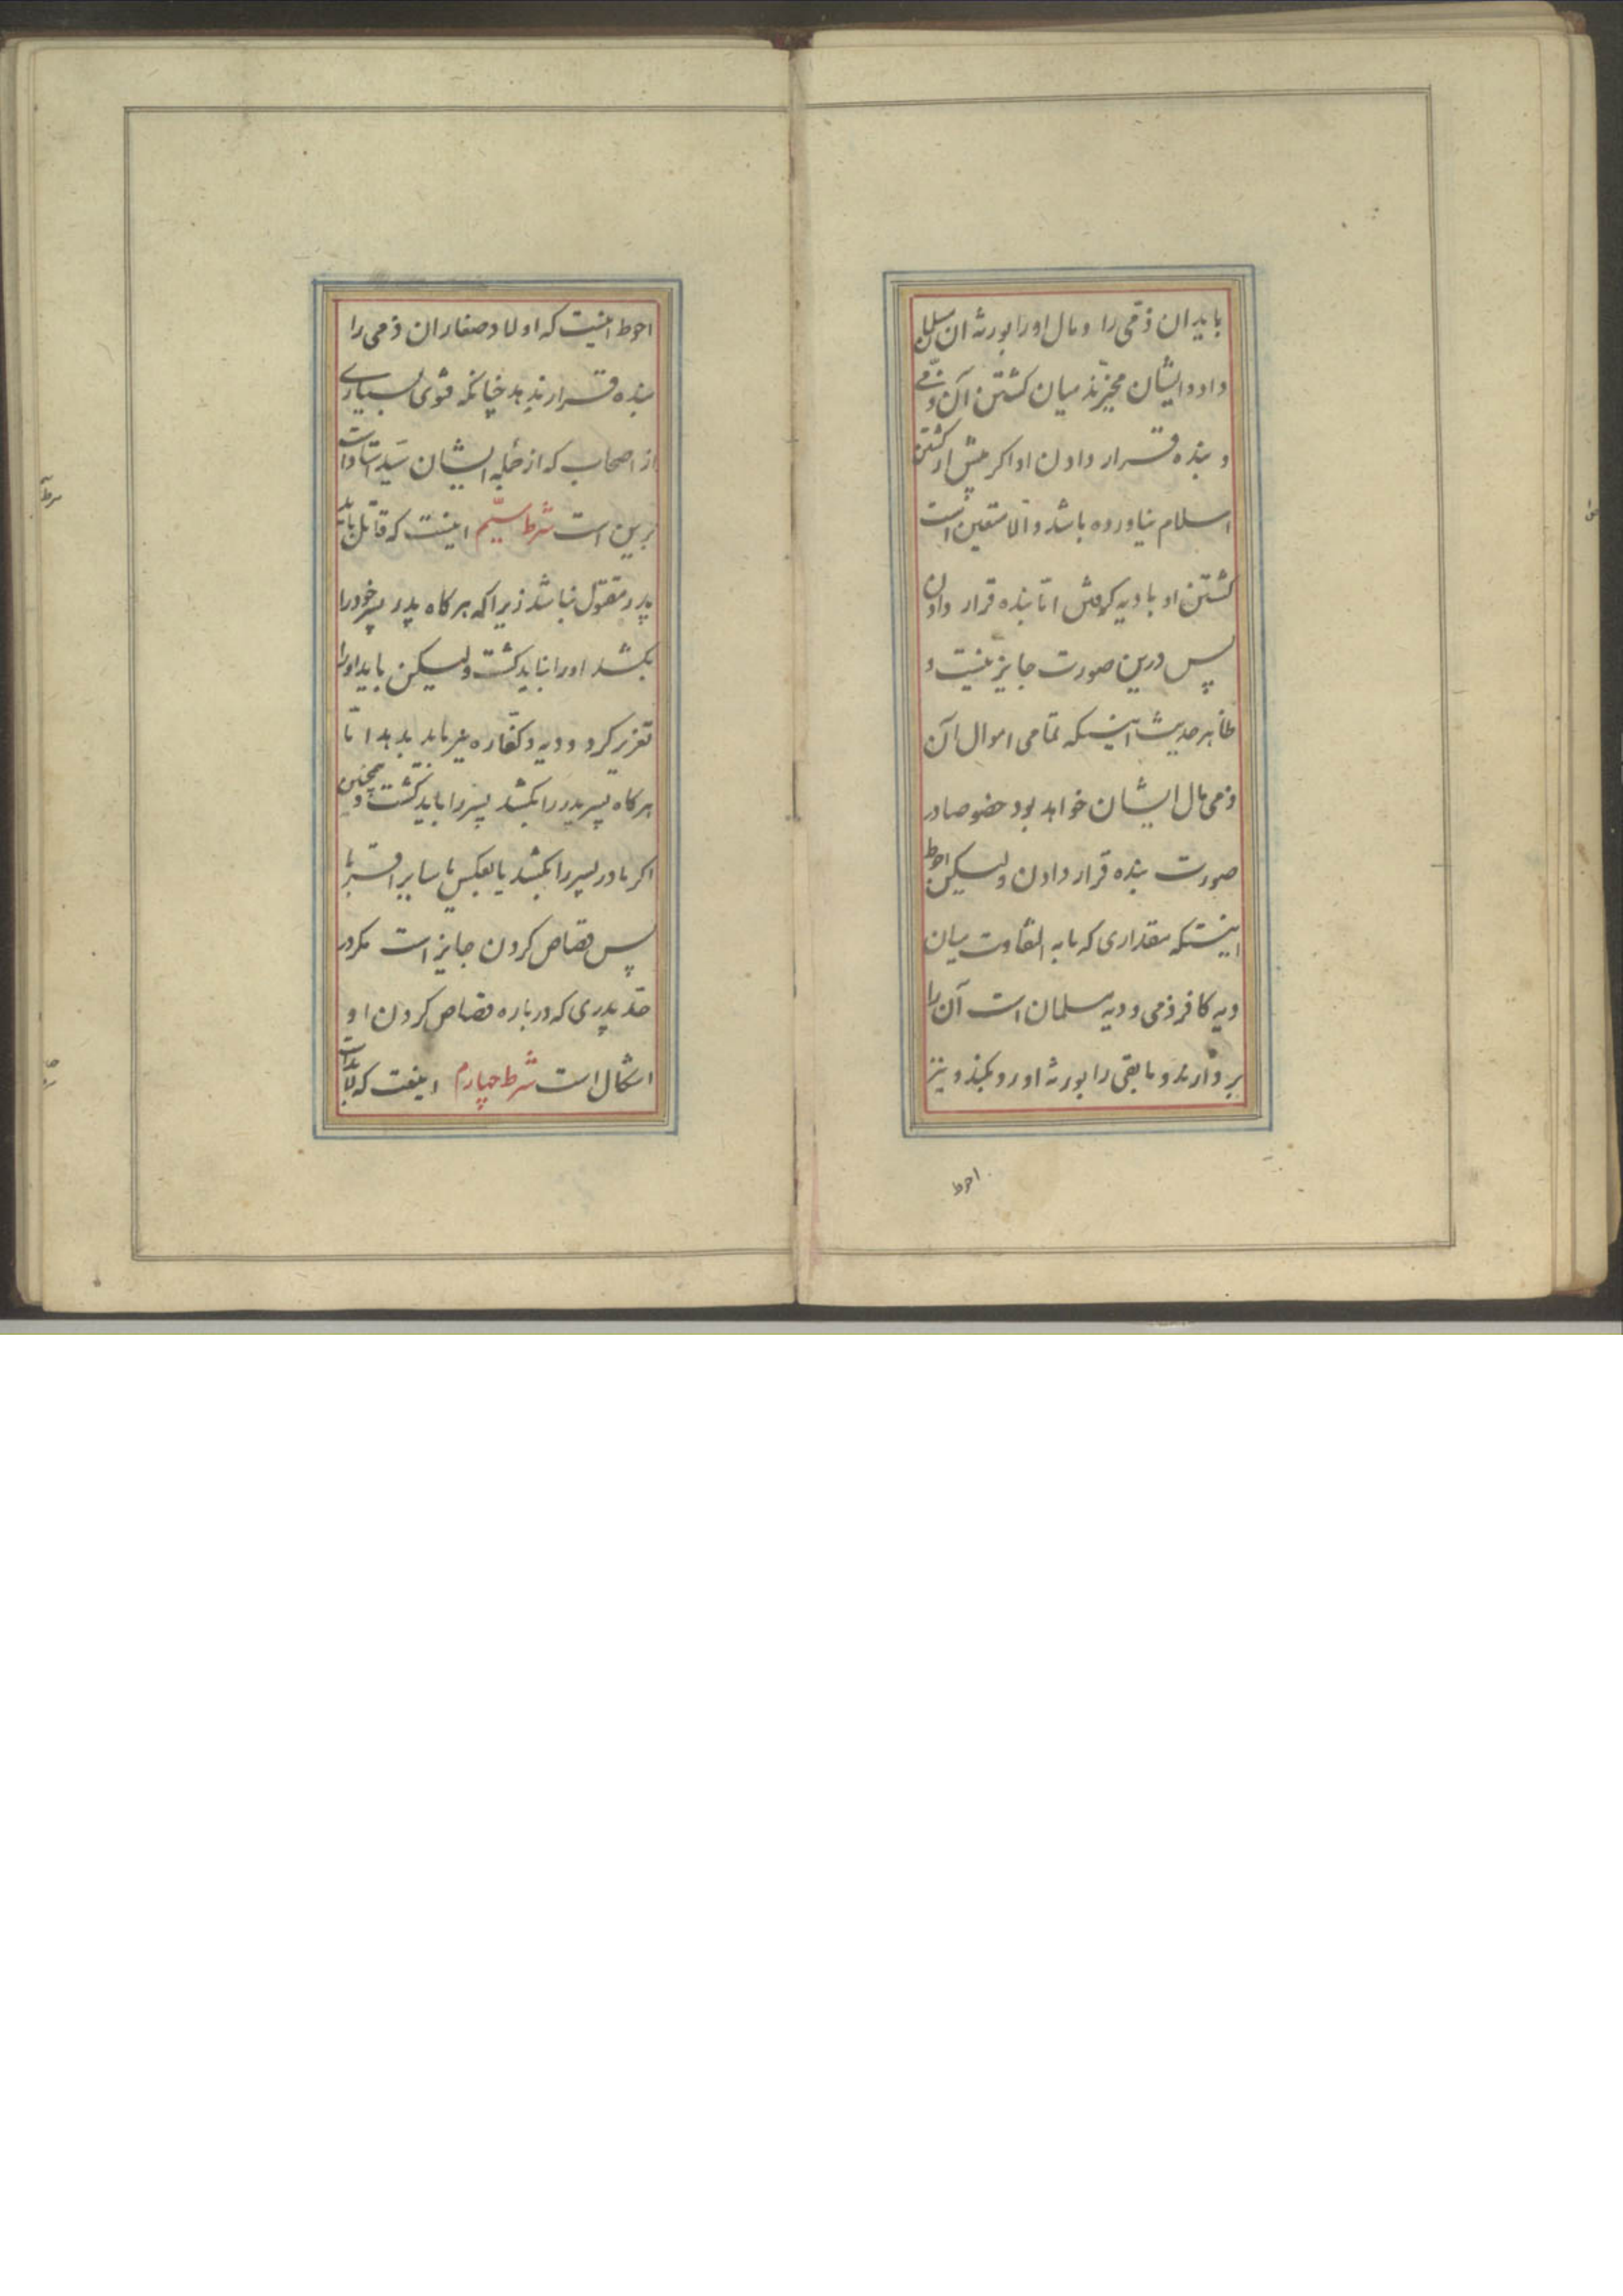 باید ان ذمی را و مال او را بورثه ان مسلمان
داد و ایشان مخیّرند میان کشتن آن ذمّی
و بنده قرار دادن او اکر پیش از کشتن
اسلام نیاورده باشد و الّا متعین است
کشتن او یا دیه کرفتن امّا بنده قرار دادن
پس درین صورت جایز نیست و
ظاهر حدیث اینستکه تمامی اموال آن
ذمی مال ایشان خواهد بود خصوصا در
صورت بنده قرار دادن و لیکن احوط
اینستکه مقداری که ما به التفاوت میان
دیه کافر ذمی و دیه مسلمان است آن را
بردارند و ما بقی را بورثه او رد بکنند و نیز
احوط
احوط اینست که اولاد صغار ان ذمی را
بنده قرار ندهد چنانکه فتوی بسیاری
از اصحاب که از جمله ایشان سیّد استاد است
برین است شرط سیّم اینست که قاتل باید
پدر مقتول نباشد زیرا که هر کاه پدر پسر خود را
بکشد او را نباید کشت و لیکن باید او را
تعزیر کرد و دیه و کفاره نیز باید بدهد امّا
هر کاه پسر پدر را بکشد پسر را باید کشت و همچنین
اکر مادر پسر را بکشد یا بعکس یا سایر اقربا
پس قصاص کردن جایز است مکر در
جدّ پدری که در باره قصاص کردن او
اشکال است شرط چهارم اینست که